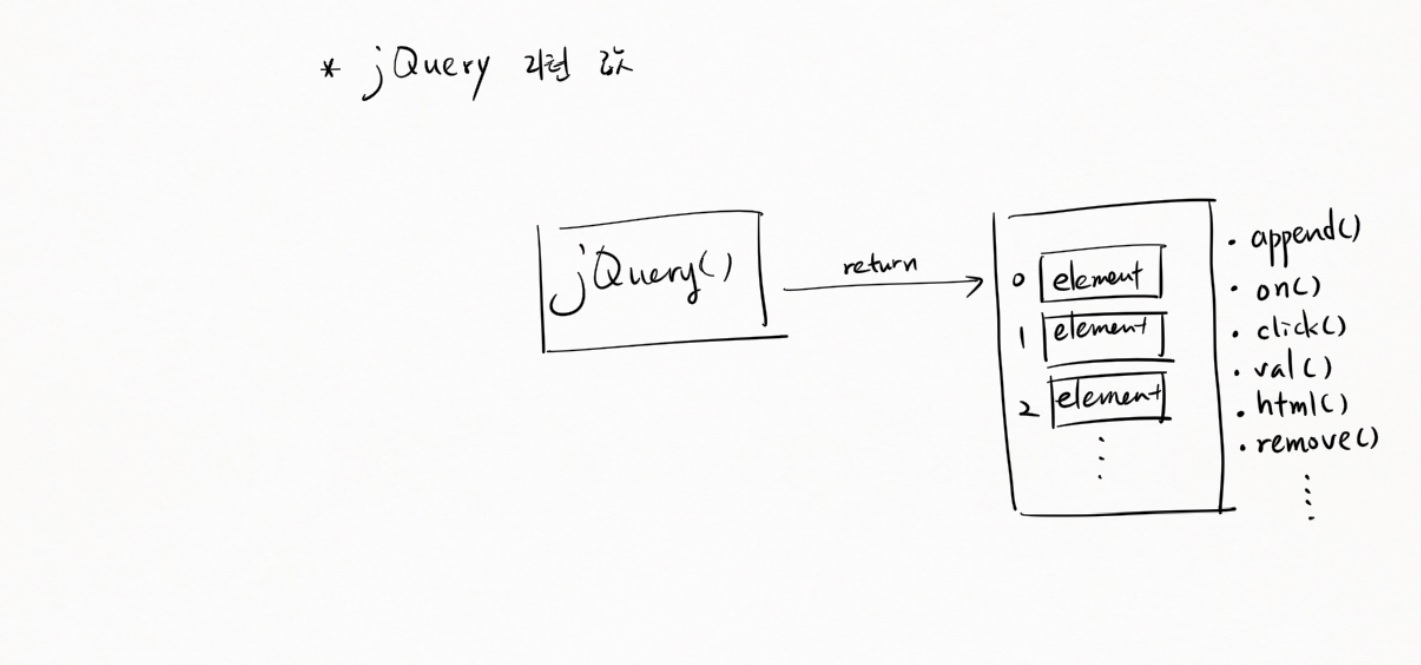 * jQuery 리턴 값
jQuery()
return
0 element
1 element
2 element
⋮
· append()
· on()
· click()
· val()
· html()
· remove()
⋮